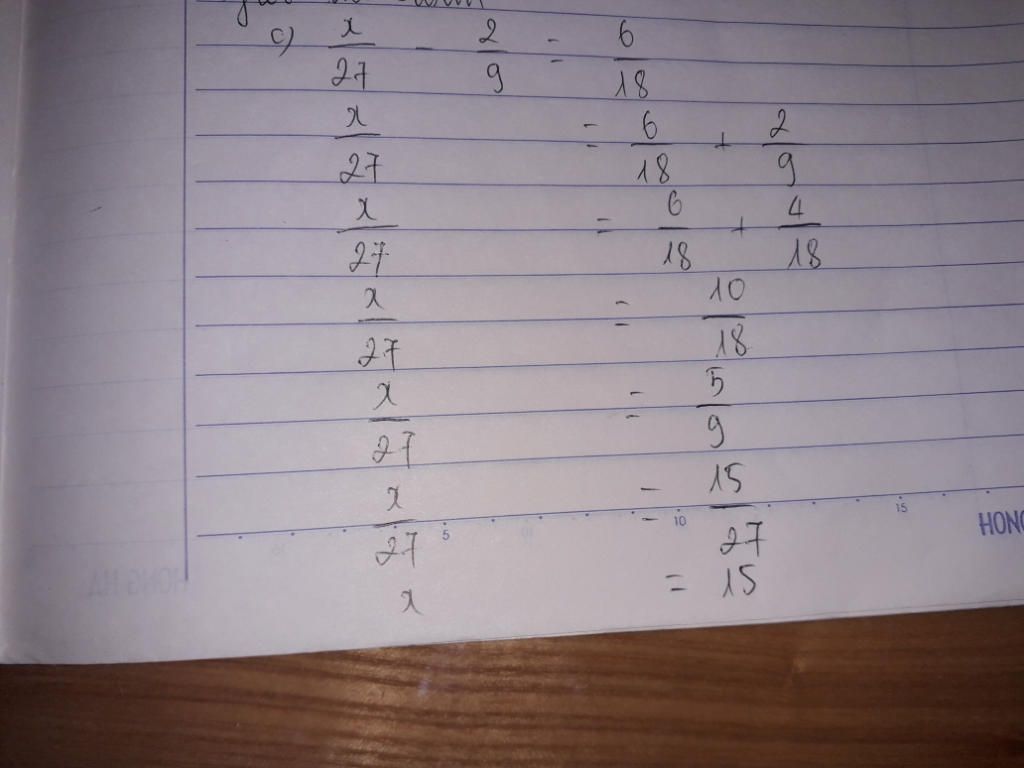 c) x/27 - 2/9 = 6/18
x/27 = 6/18 + 2/9
x/27 = 6/18 + 4/18
x/27 = 10/18
x/27 = 5/9
x/27 = 15/27
5 10 15 HONG
x = 15